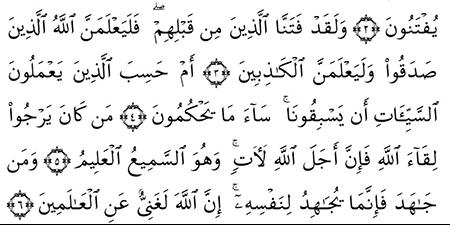 يُفْتَنُونَ ﴿٢﴾ وَلَقَدْ فَتَنَّا ٱلَّذِينَ مِن قَبْلِهِمْ ۖ فَلَيَعْلَمَنَّ ٱللَّهُ ٱلَّذِينَ
صَدَقُوا۟ وَلَيَعْلَمَنَّ ٱلْكَـٰذِبِينَ ﴿٣﴾ أَمْ حَسِبَ ٱلَّذِينَ يَعْمَلُونَ
ٱلسَّيِّـَٔاتِ أَن يَسْبِقُونَا ۚ سَآءَ مَا يَحْكُمُونَ ﴿٤﴾ مَن كَانَ يَرْجُوا۟
لِقَآءَ ٱللَّهِ فَإِنَّ أَجَلَ ٱللَّهِ لَـَٔاتٍ ۚ وَهُوَ ٱلسَّمِيعُ ٱلْعَلِيمُ ﴿٥﴾ وَمَن
جَـٰهَدَ فَإِنَّمَا يُجَـٰهِدُ لِنَفْسِهِۦٓ ۚ إِنَّ ٱللَّهَ لَغَنِىٌّ عَنِ ٱلْعَـٰلَمِينَ ﴿٦﴾